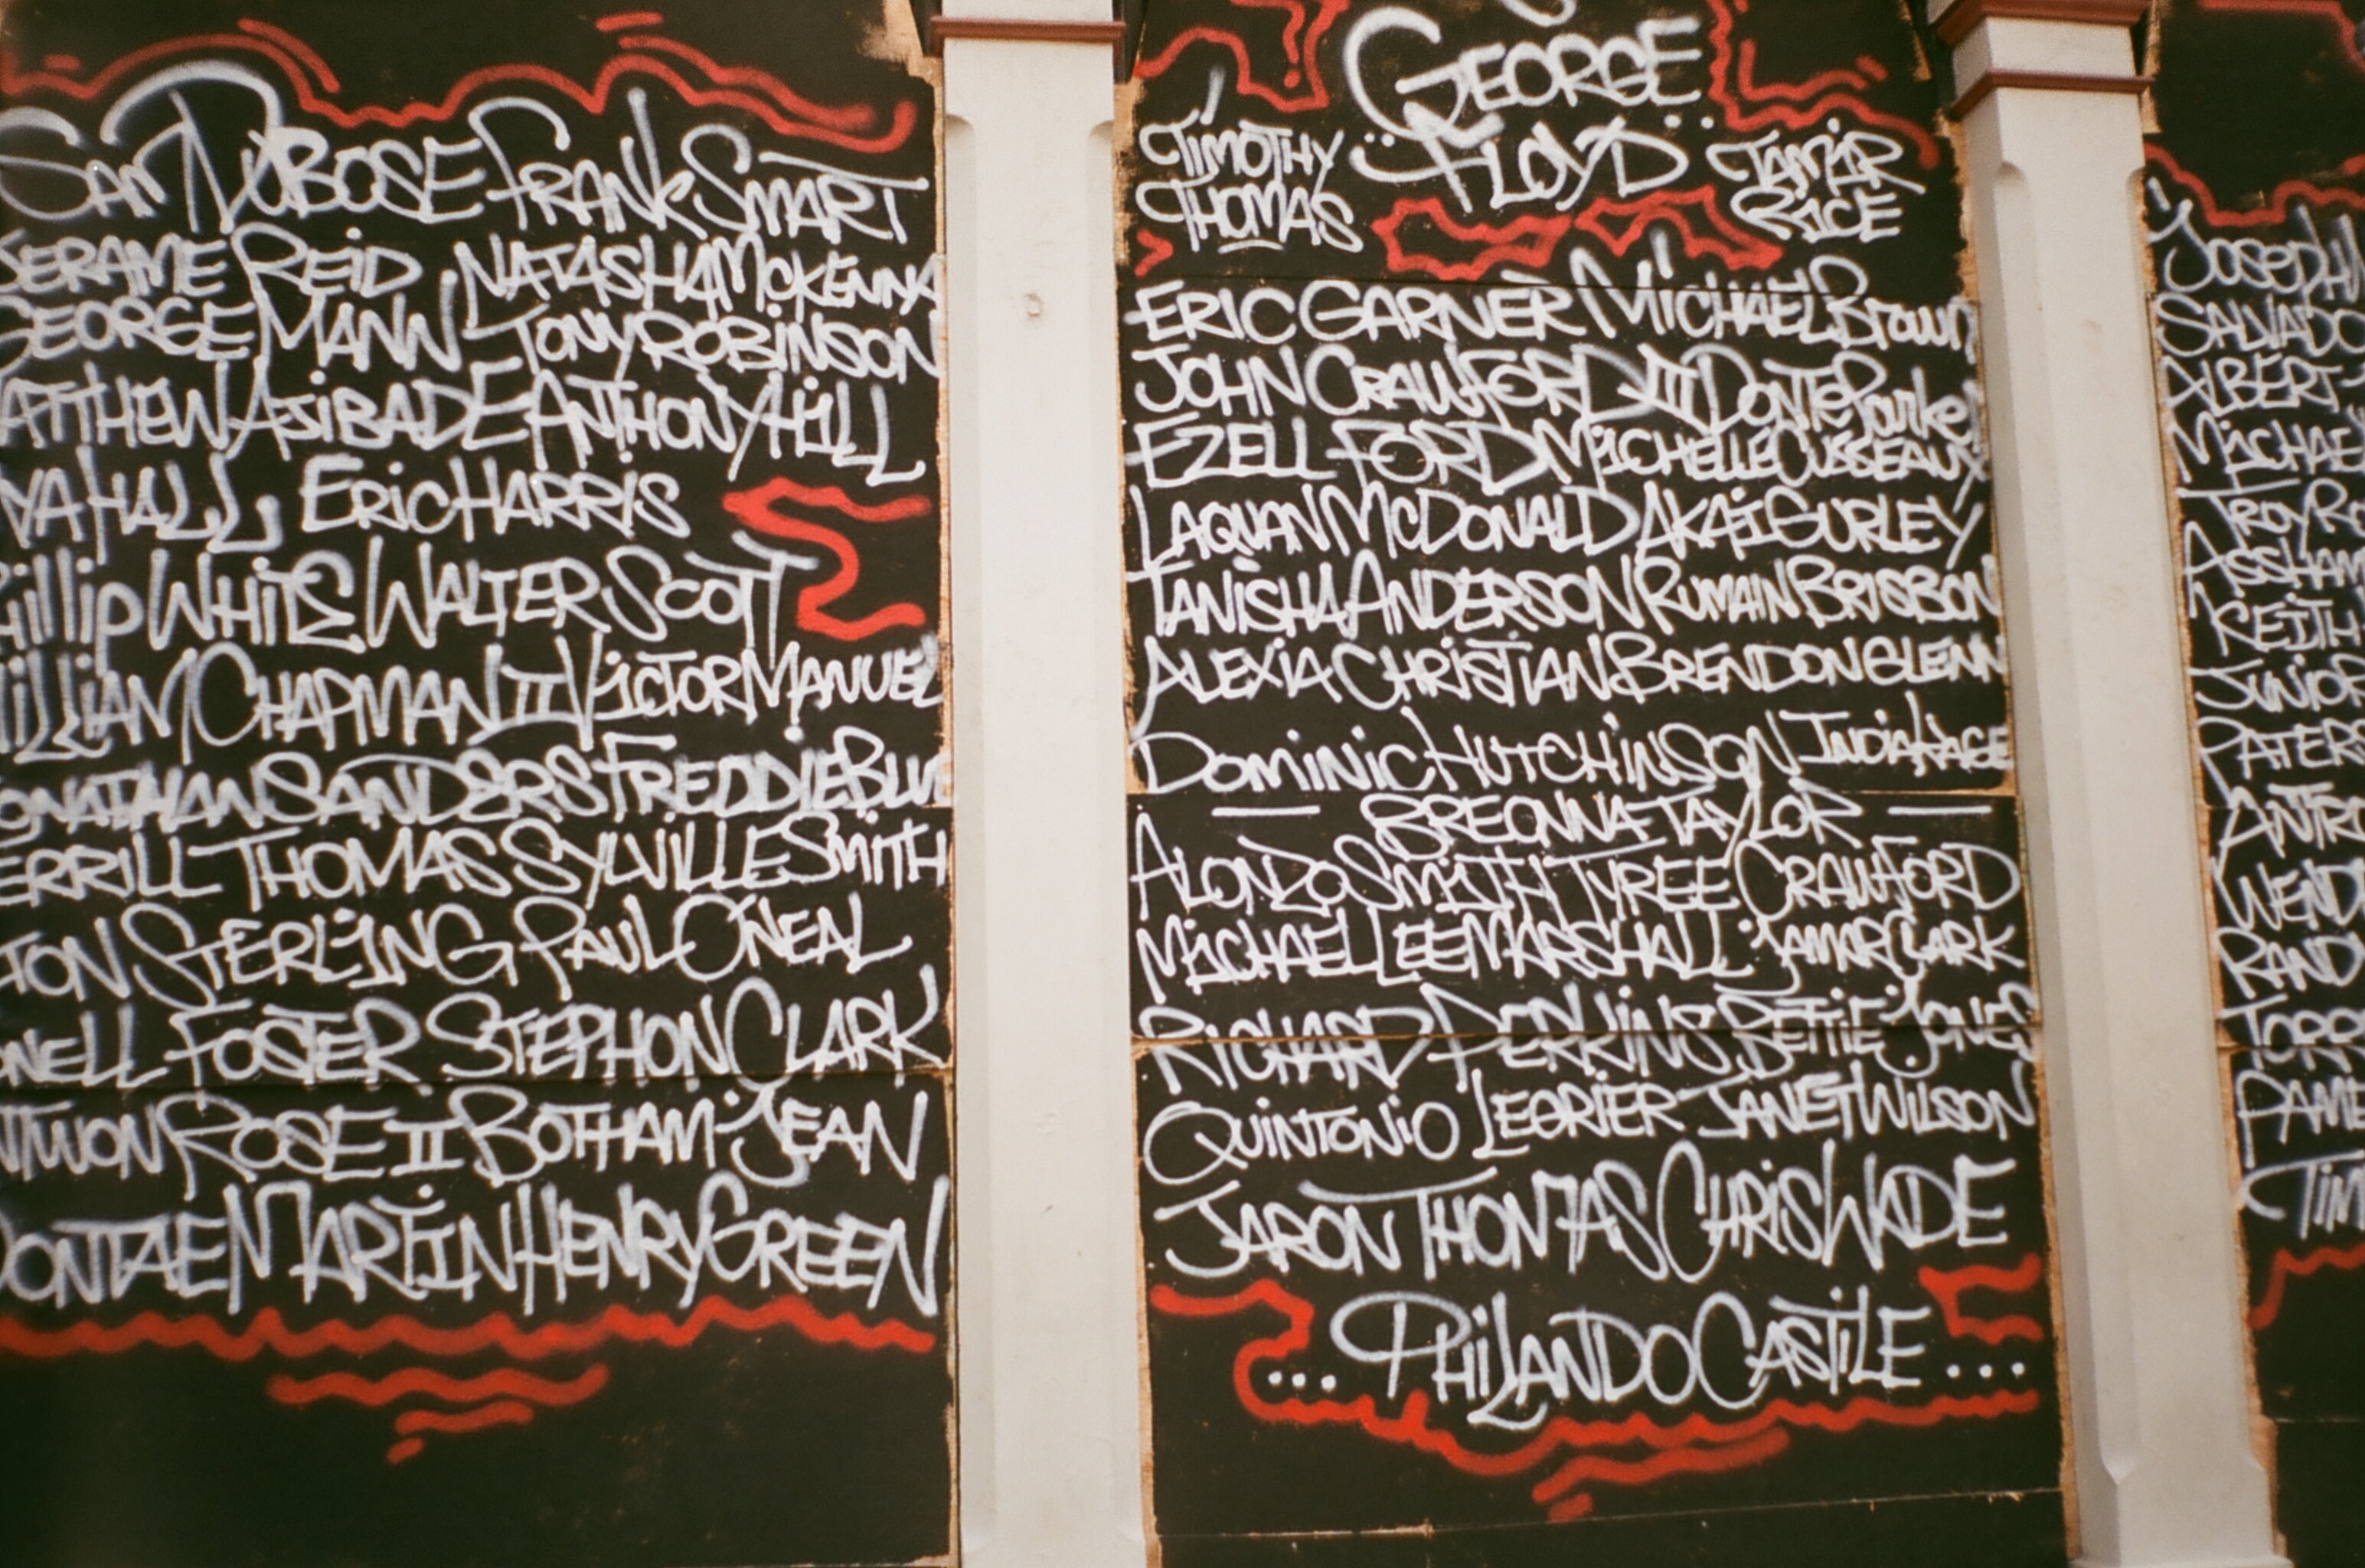 SAM DUBOSE FRANK SMART
JERAME REID NATASHA McKENNA
GEORGE MANN TONY ROBINSON
MATTHEW AJIBADE ANTHONY HILL
YA HALL ERIC HARRIS
Phillip WHITE WALTER SCOTT
WILLIAM CHAPMAN II VICTOR MANUEL
JONATHAN SANDERS FREDDIE BLUE
TERRILL THOMAS SYLVILLE SMITH
TON STERLING PAUL O'NEAL
NELL FOSTER STEPHON CLARK
NTWON ROSE II BOTHAM JEAN
DONTAE MARTIN HENRY GREEN
GEORGE
FLOYD
TIMOTHY
THOMAS
TAMIR
RICE
ERIC GARNER MICHAEL BROWN
JOHN CRAWFORD III DONTE Parker
EZELL FORD MICHELLE CUSSEAUX
LAQUAN McDONALD AKAI GURLEY
TANISHA ANDERSON RUMAIN BRISBON
ALEXIA CHRISTIAN BRENDON GLENN
DOMINIC HUTCHINSON INDIA KAGE
— BREONNA TAYLOR —
ALONZO SMITH TYREE CRAWFORD
MICHAEL LEE MARSHALL JAMAR CLARK
RICHARD PERKINS BETTIE JONES
QUINTONIO LEGRIER JANET WILSON
JARON THOMAS CHRIS WADE
... PHILANDO CASTILE ...
JOSEPH
SALVADO
ALBERT
MICHAEL
TROY RO
ASSHAM
KEITH
JUNIOR
PATERS
ANTRO
WEND
RAND
TORR
PAME
TIM